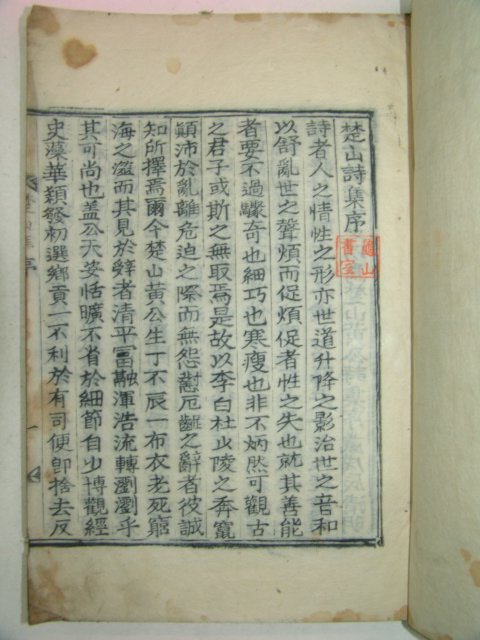 楚山詩集序
龜山書室
詩者人之情性之形亦世道升降之影治世之音和
以舒亂世之聲煩而促煩促者性之失也就其善能
者要不過驟奇也細巧也寒瘦也非不炳然可觀古
之君子或斯之無取焉是故以李白杜山陵之奔竄
顚沛於亂離危迫之際而無怨懟厄齪之辭者彼誠
知所擇焉爾今楚山黃公生丁不辰一布衣老死窮
海之澨而其見於辭者清平富融渾浩流轉瀏瀏乎
其可尚也盖公天姿恬曠不省於細節自少博觀經
史藻華穎發初選鄉貢一不利於有司便卽捨去反